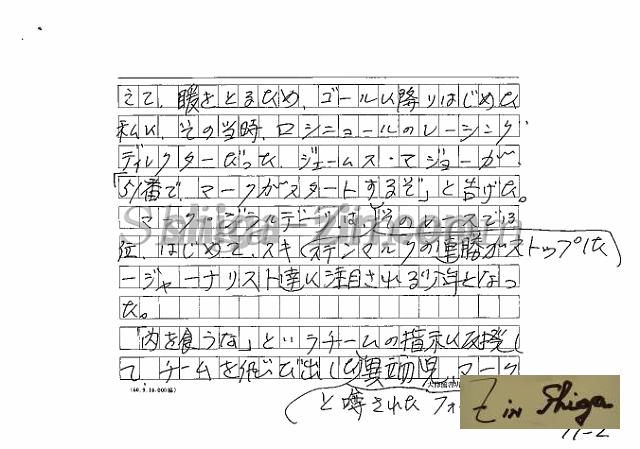 えて、暖をとるため、ゴールに降りはじめた
私に、その当時、ロシニョールのレーシング
ディレクターだった、ジェームス・マジョーが、
「51番で、マークがスタートするぞ」と告げた。
マーク・ジラルデリは、そのレースで3
位、はじめて、スキ(ステンマルクの連勝がストップした)
ージャーナリスト達に注目される少年となっ
た。
「肉を食うな」というチームの指示に反撥し
て チームを飛び出した異端児、マーク
と噂された フォ
(60.9.10.000幅)
大修館書
Z in Shiga
11-2
Shiga-Zin.com